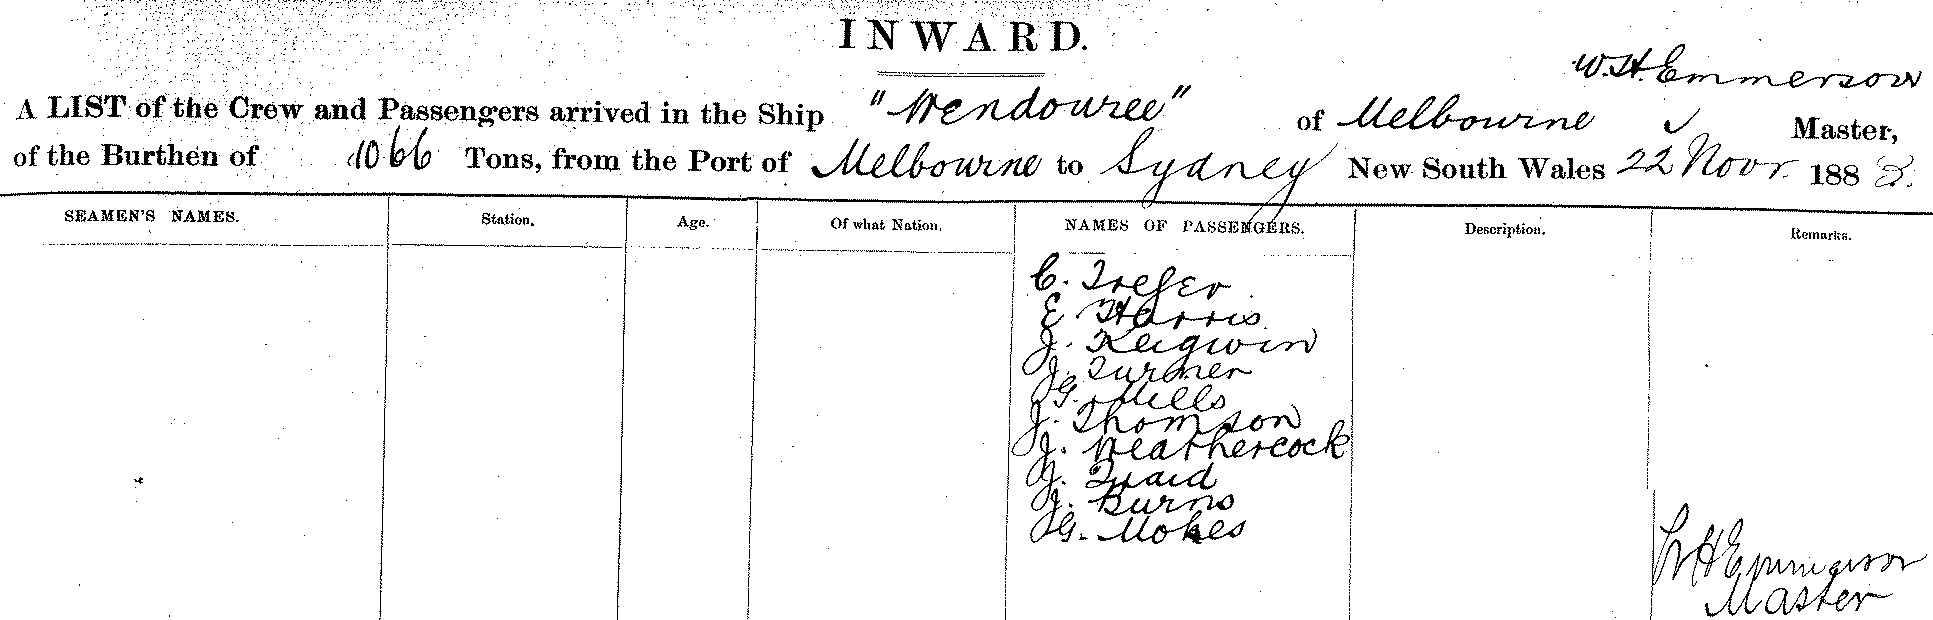 INWARD.
W. H. Emmerson
A LIST of the Crew and Passengers arrived in the Ship "Wendouree" of Melbourne Master,
of the Burthen of 1066 Tons, from the Port of Melbourne to Sydney New South Wales 22 Novr. 188
SEAMEN'S NAMES. Station. Age. Of what Nation. NAMES OF PASSENGERS. Description. Remarks.
C.
E Harris
J. Keigwin
J. Turner
G. Mills
J. Thomson
J. Weathercock
J. Quaid
J. Burns
G.
W H Emmerson
Master